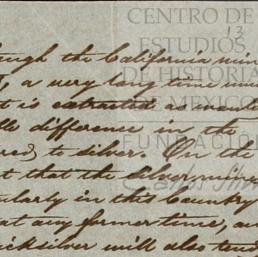 CENTRO DE
ESTUDIOS
DE HISTORIA
DE MEXICO
FUNDACIÓN
Carlos
13
ugh the California min
a very long time mus
t is extracted
le difference in the
red to silver. On the
t that the silver mines
ularly in this Country
at any former time, an
icksilver will also tend